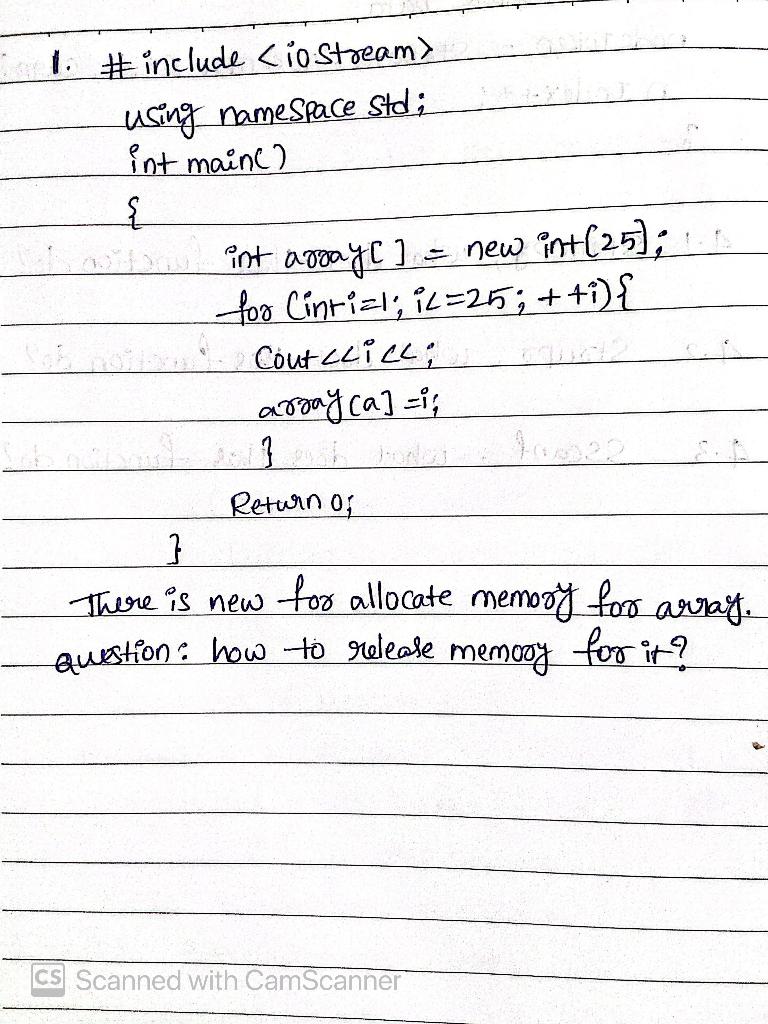 1. # include <iostream>
using namespace std;
int main()
{
int array[ ] = new int[25];
for (int i=1; i<=25; ++i){
Cout<<i<<;
array[a] =i;
}
Return 0;
}
There is new for allocate memory for array.
question: how to release memory for it?
CS Scanned with CamScanner